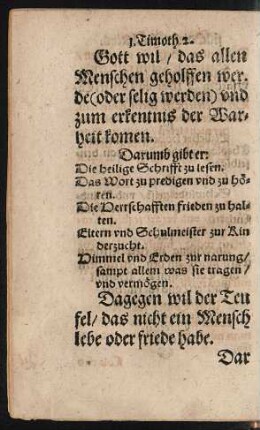 1. Timoth 2.
Gott wil / das allen
Menschen geholffen wer⸗
de (oder selig werden) vnd
zum erkentnis der War⸗
heit komen.
Darumb gibt er:
Die heilige Schrifft zu lesen.
Das Wort zu predigen vnd zu hö⸗
ren.
Die Herrschafften frieden zu hal⸗
ten.
Eltern vnd Schulmeister zur Kin
derzucht.
Himmel vnd Erden zur narung /
sampt allem was sie tragen /
vnd vermögen.
Dagegen wil der Teu
fel / das nicht ein Mensch
lebe oder friede habe.
Dar